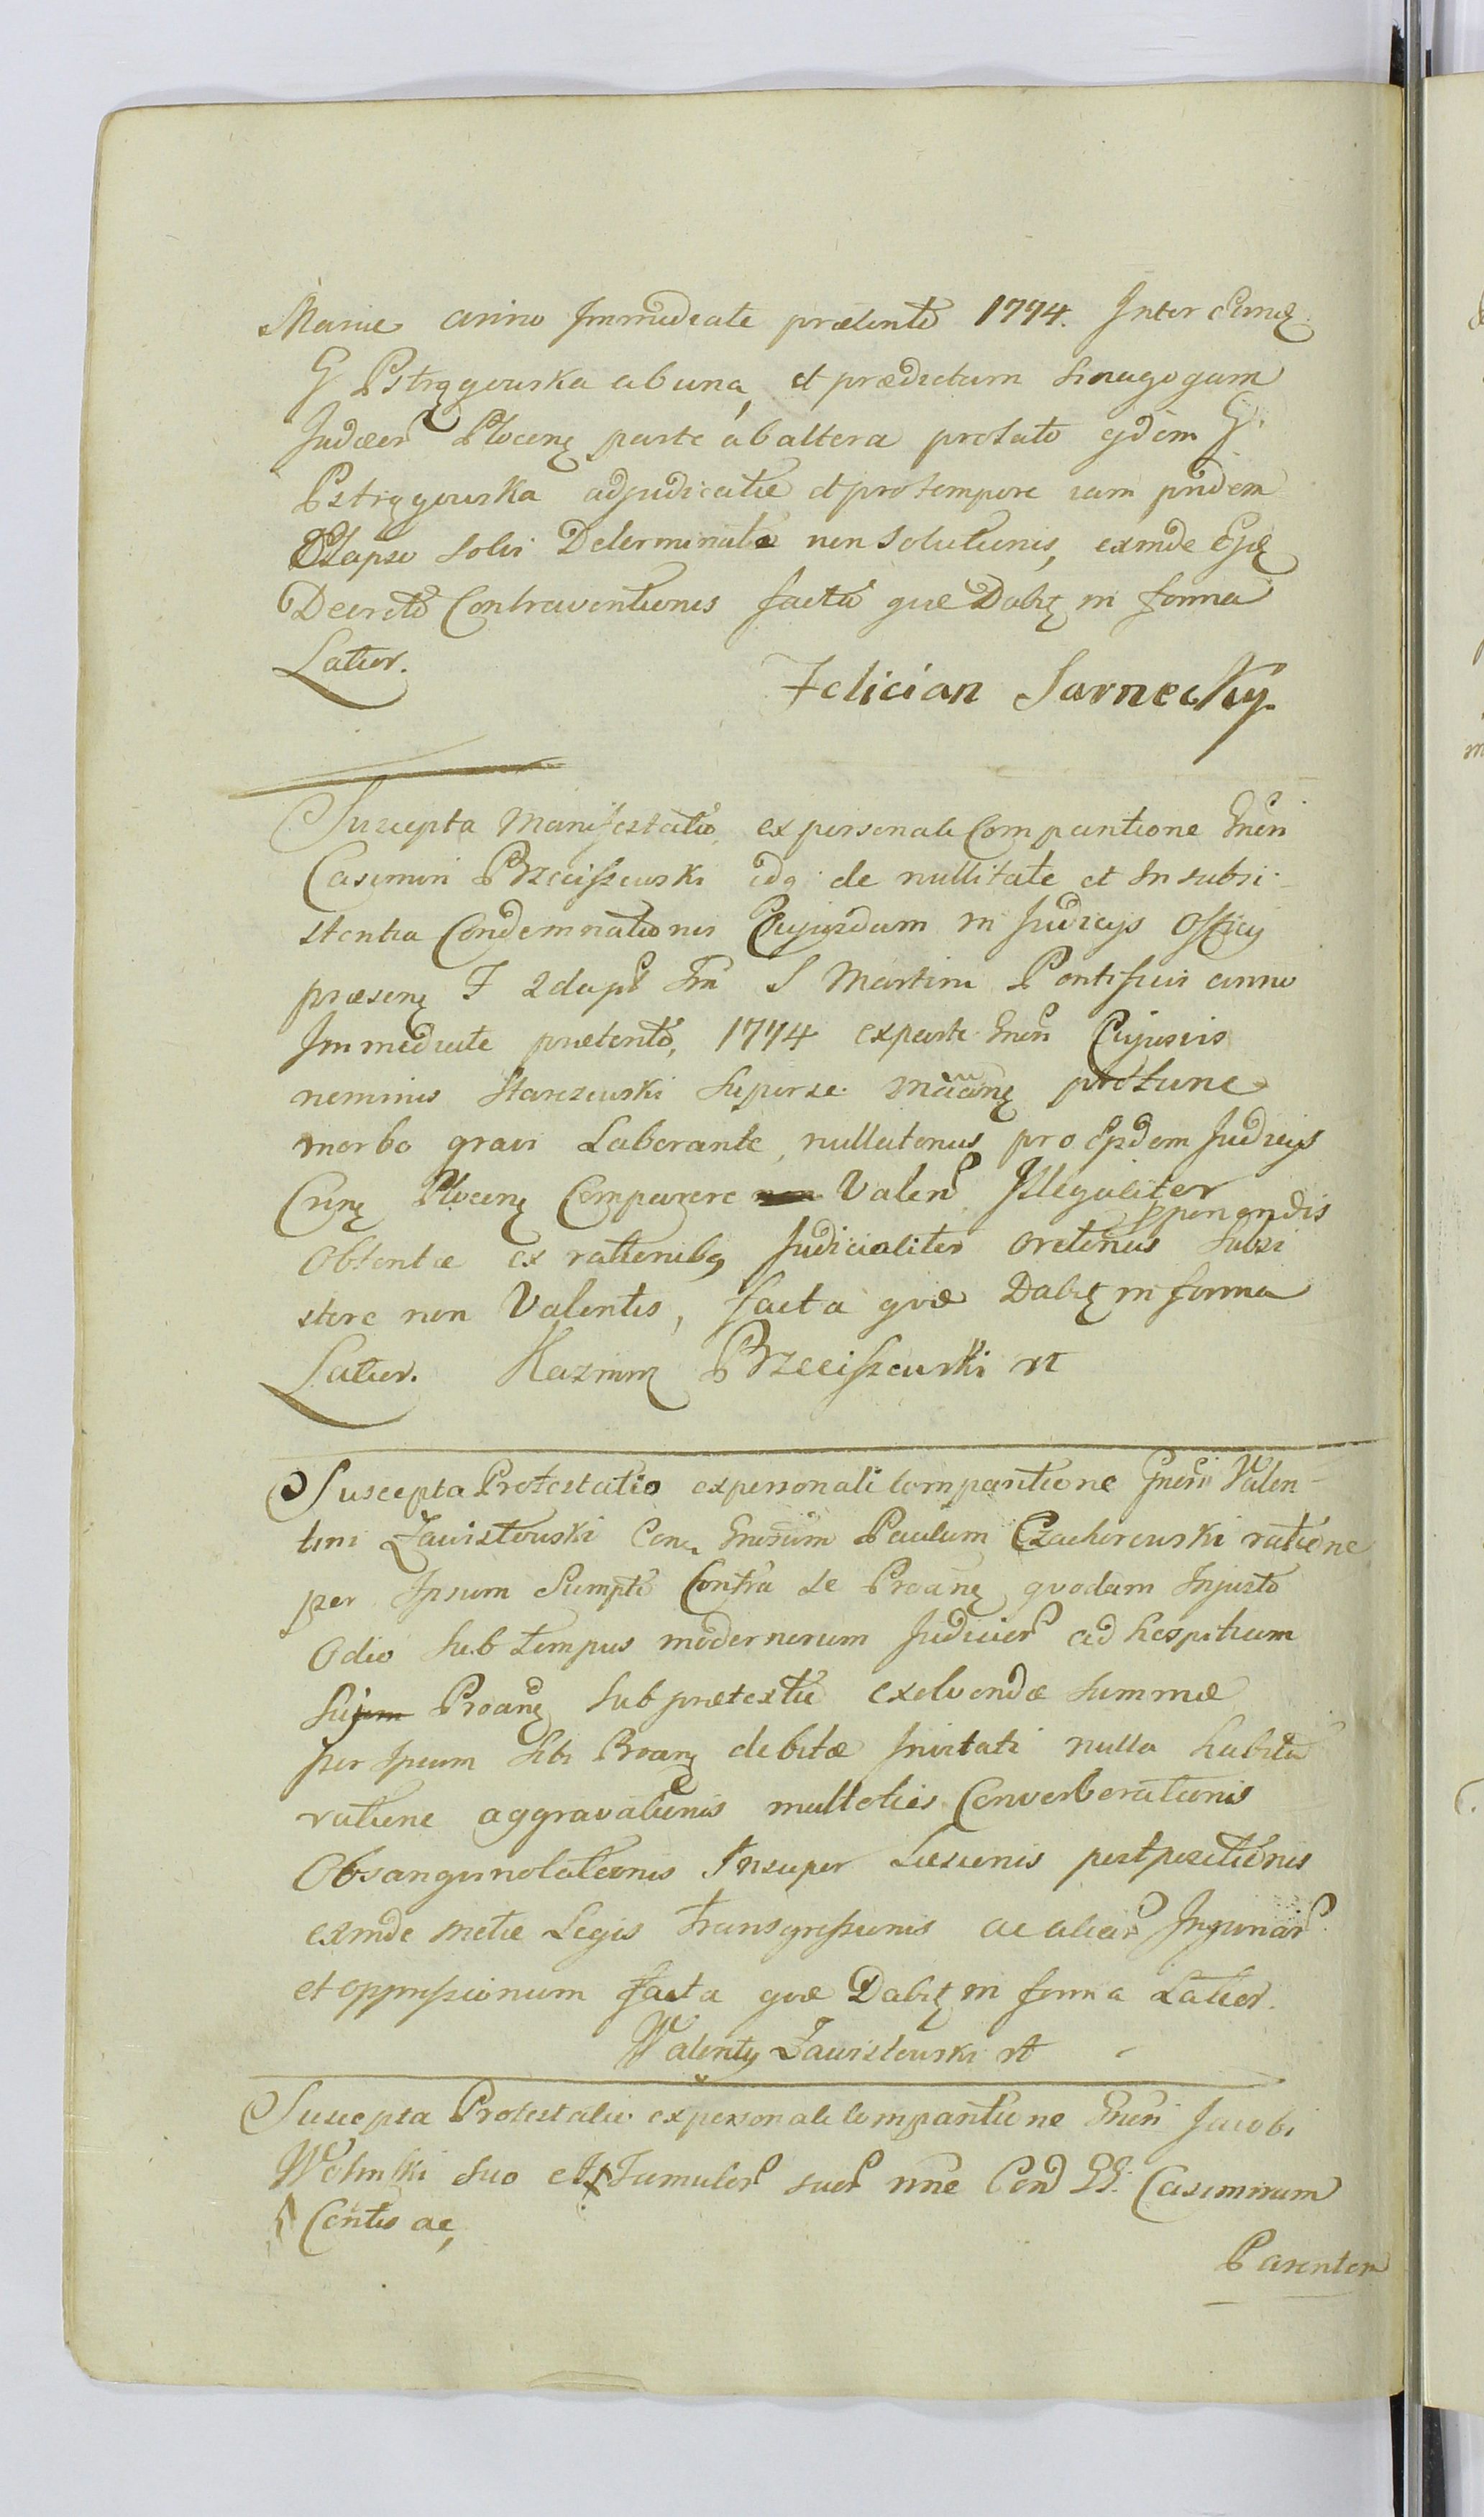 Mariæ anno Immediate præterito 1774. Inter eund
G Pstrągowska ab una, et prædictam Sinagogam
Judæor Plocen parte ab altera prolato ejdem G.
Pstrągowska adjudicatæ et pro tempore iam pridem
Elapso Solvi Determinatæ non Solutionis, exinde Ejq
Decreto Contraventionis facta quæ Dabit in forma
Latior.
Felician Sarnecky.
Suscepta Manifestatio, ex personali Comparitione Gnerosi
Casimiri Brzeciszewski idq de nullitate et Insubsi-
stentia Condemnationis Cujusdam in Judicijs Officij
præsens F 2da pt Fm S Martini Pontificis anno
Immediate præterito, 1774 ex parte Gnrsi Cujusvis
nominis Starczewski super se Manne protunc
morbo gravi Laborante, nullatenus pro Ejsdem Judicijs
Crns Plocens Comparere Valen Illegaliter
Obtentæ ex rationibq Judicialiter oretenus Exponendis Subsi
stere non Valentis, facta quæ Dabit in forma
Latior. Kazimrz Brzeciszewski rt
Suscepta Protestatio ex personali Comparitione Gnrsi Valen-
tini Zawistowski Con Gnrosum Paulum Czachorowski ratione
per Ipsum Sumpto Contra se Proane quodam Injusto
Odio sub tempus modernorum Judicior ad hospitium
Proane sub prætextu exolvendæ summæ
per Ipsum sibi Proane debitæ Invitati nulla habita
ratione aggravationis multoties Converberationis
Obsanguinolationis Insuper Læsionis postpositionis
exinde metæ Legis Transgressionis ac aliar Injuriar
et oppressionum facta quæ Dabit in forma Latior.
Walenty Zawistowski rt
Suscepta Protestatio ex personali Comparitione Gnrsi Jacobi
Wolinski suo et Famulor suor nne Con GG. Casimirum
Contis ac,
Parentem